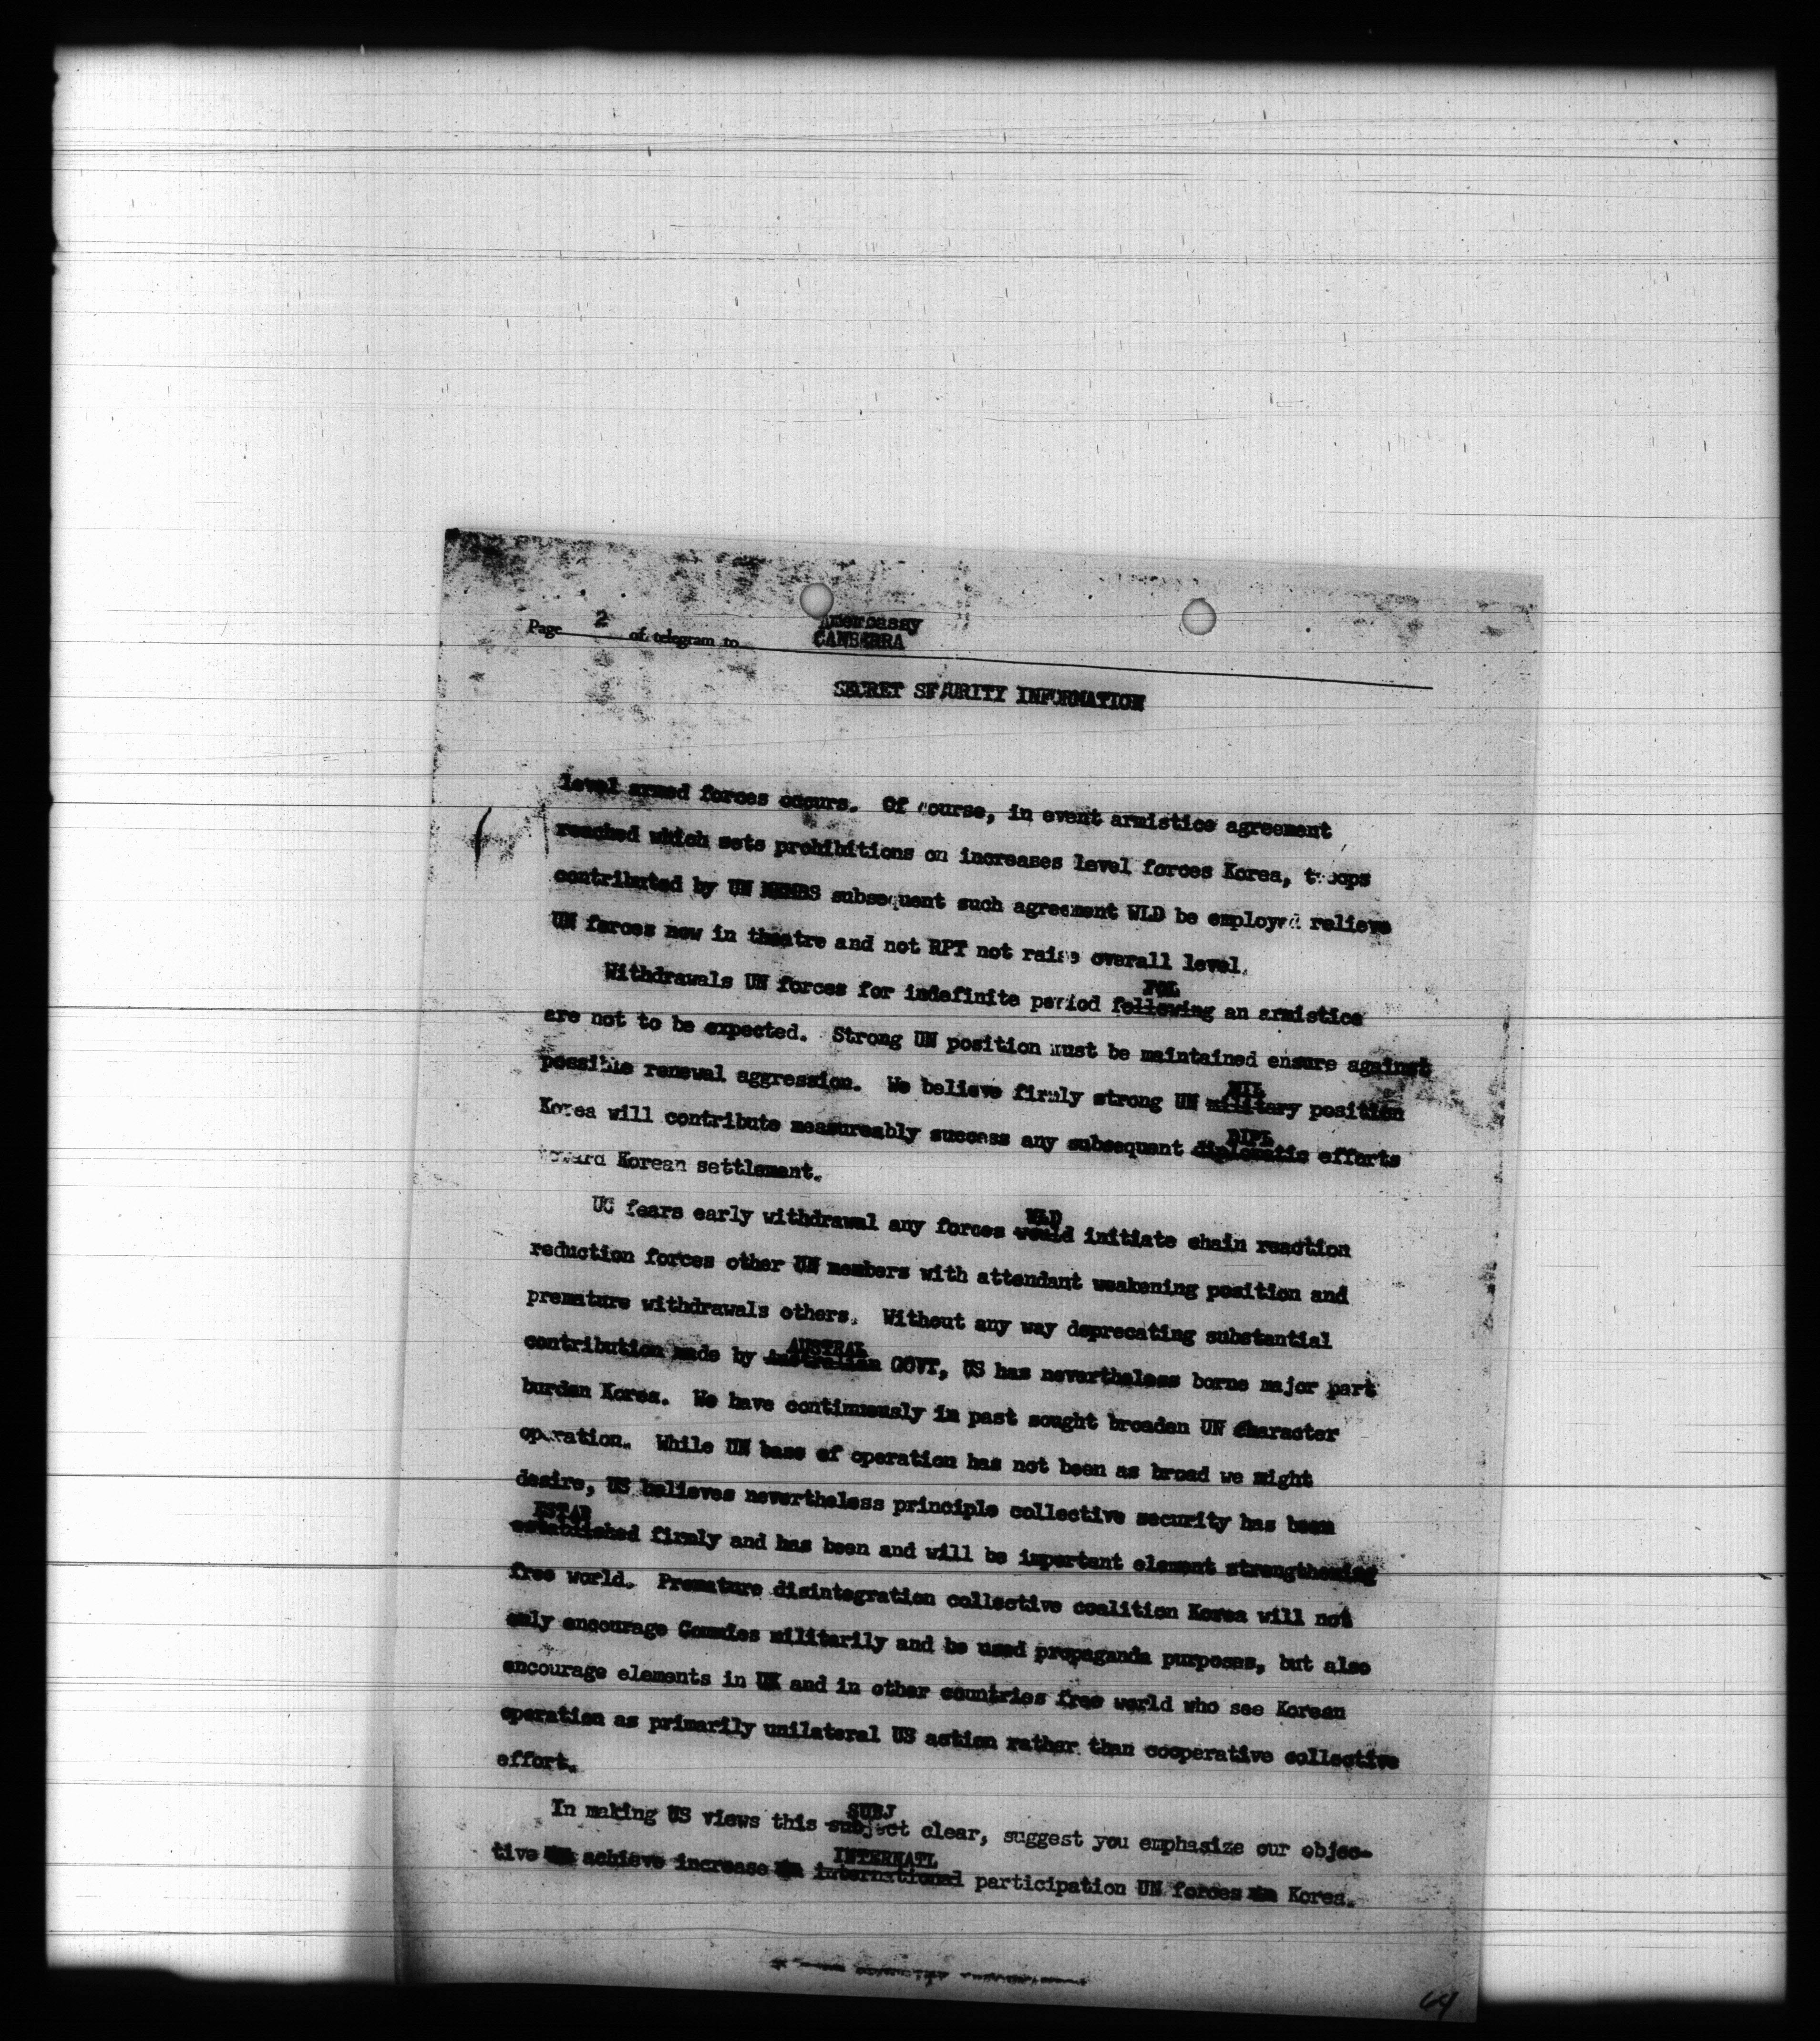 Page 2 of telegram to Amembassy
CANBERRA
SECRET SECURITY INFORMATION
level armed forces occurs. Of course, in event armistice agreement
reached which sets prohibitions on increases level forces Korea, troops
contributed by UN MEMBS subsequent such agreement WLD be employed relieve
UN forces now in theatre and not RPT not raise overall level.
FOL
Withdrawals UN forces for indefinite period following an armistice
are not to be expected. Strong UN position must be maintained ensure against
possible renewal aggression. We believe firmly strong UN military position
MIL
Korea will contribute measureably success any subsequent diplomatic efforts
DIPL
toward Korean settlement.
WLD
US fears early withdrawal any forces would initiate chain reaction
reduction forces other UN members with attendant weakening position and
premature withdrawals others. Without any way deprecating substantial
AUSTRAL
contribution made by Australian GOVT, US has nevertheless borne major part
burden Korea. We have continuously in past sought broaden UN character
operation. While UN base of operation has not been as broad we might
desire, US believes nevertheless principle collective security has been
ESTAB
established firmly and has been and will be important element strengthening
free world. Premature disintegration collective coalition Korea will not
only encourage Commies militarily and be used propaganda purposes, but also
encourage elements in UK and in other countries free world who see Korean
operation as primarily unilateral US action rather than cooperative collective
effort.
SUBJ
In making US views this subject clear, suggest you emphasize our objec-
INTERNATL
tive achieve increase international participation UN forces in Korea.
64